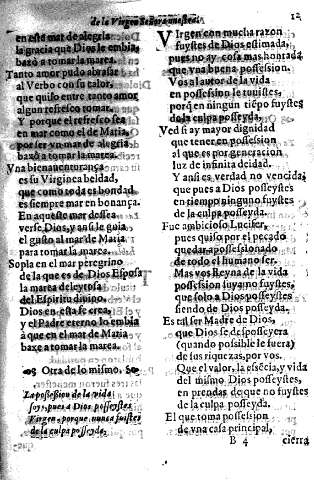 de la Virgen Señora nuestra. 12
en este mar de alegria
la gracia que Dios le embia,
baxó a tomar la marea.
Tanto amor pudo abrasar
al Verbo con su calor,
que quiso entre tanto amor
algun refresco tomar.
Y porque el refresco sea
en mar como el de Maria,
por ser vn mar de alegria
baxò a tomar la marea.
Vna bienauenturança
es su Virginea beldad,
que como toda es bondad
es siempre mar en bonança.
En aqueste mar dessea
verse Dios, y assi le guia
el gusto al mar de Maria
para tomar la marea.
Sopla en el mar peregrino
de la que es de Dios Esposa
la marea deleytosa
del Espiritu diuino.
Dios en esta se crea,
y el Padre eterno lo embia
à que en el mar de Maria
baxe a tomar la marea.
Otra de lo mismo.
La possession de la vida
soys, pues a Dios posseystes
Virgen, porque nunca fuistes
de la culpa posseyda.
Virgen con mucha razon
fuystes de Dios estimada,
pues no ay cosa mas hontada
que vna buena possession.
Vos al autor de la vida
en possession le tuuistes,
porq̃ en ningun tiẽpo fuystes
de la culpa posseyda.
Ved si ay mayor dignidad
que tener en possession
al que es por generacion
luz de infinita deidad.
Y ansi es verdad no vencida,
que pues a Dios posseystes
en tiempo ninguno fuystes
de la culpa posseyda.
Fue ambicioso Lucifer,
pues quiso por el pecado
quedar apossessionado
de todo el humano ser.
Mas vos Reyna de la vida
possession suya no fuystes,
que solo a Dios posseystes
siendo de Dios posseyda.
Es tal ser Madre de Dios,
que Dios se desposseyera
(quando possible le fuera)
de sus riquezas, por vos.
Que el valor, la essẽcia, y vida
del mismo Dios posseystes,
en prendas de que no fuystes
de la culpa posseyda.
El que toma possession
de vna casa principal,
B 4 cierra